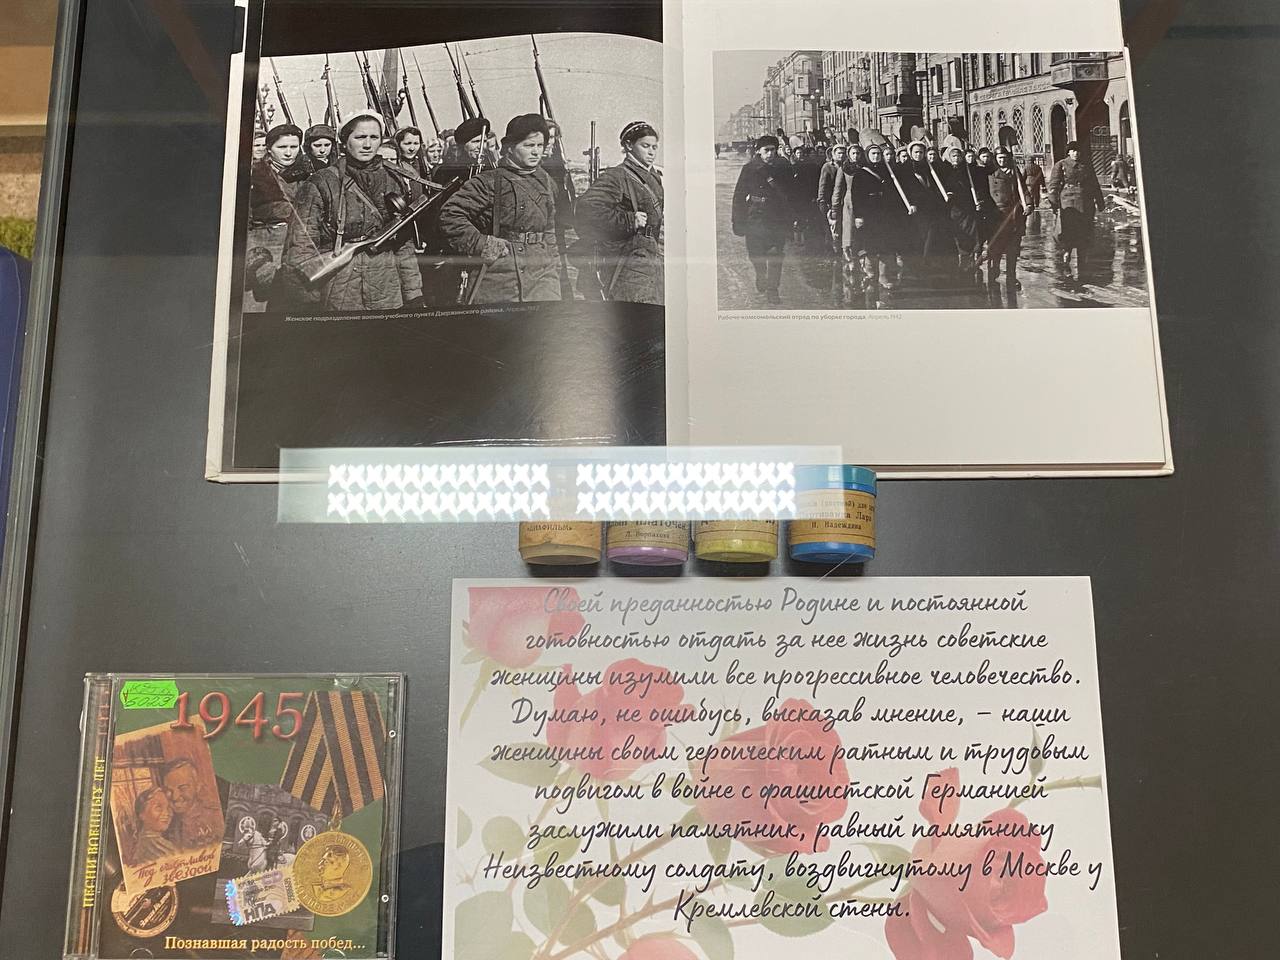 Женское подразделение военно-учебного пункта Дзержинского района. Апрель 1942
Рабоче-комсомольский отряд по уборке города. Апрель 1942
«ДИАФИЛЬМ»
платочек
Партизанка Лара
Н. Надеждина
Своей преданностью Родине и постоянной
готовностью отдать за нее жизнь советские
женщины изумили все прогрессивное человечество.
Думаю, не ошибусь, высказав мнение, – наши
женщины своим героическим ратным и трудовым
подвигом в войне с фашистской Германией
заслужили памятник, равный памятнику
Неизвестному солдату, воздвигнутому в Москве у
Кремлевской стены.
1945
ПЕСНИ ВОЕННЫХ ЛЕТ
Под счастливой
звездой
Познавшая радость побед...